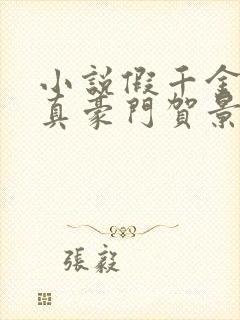 小説假千金
真豪門賀景
張毅